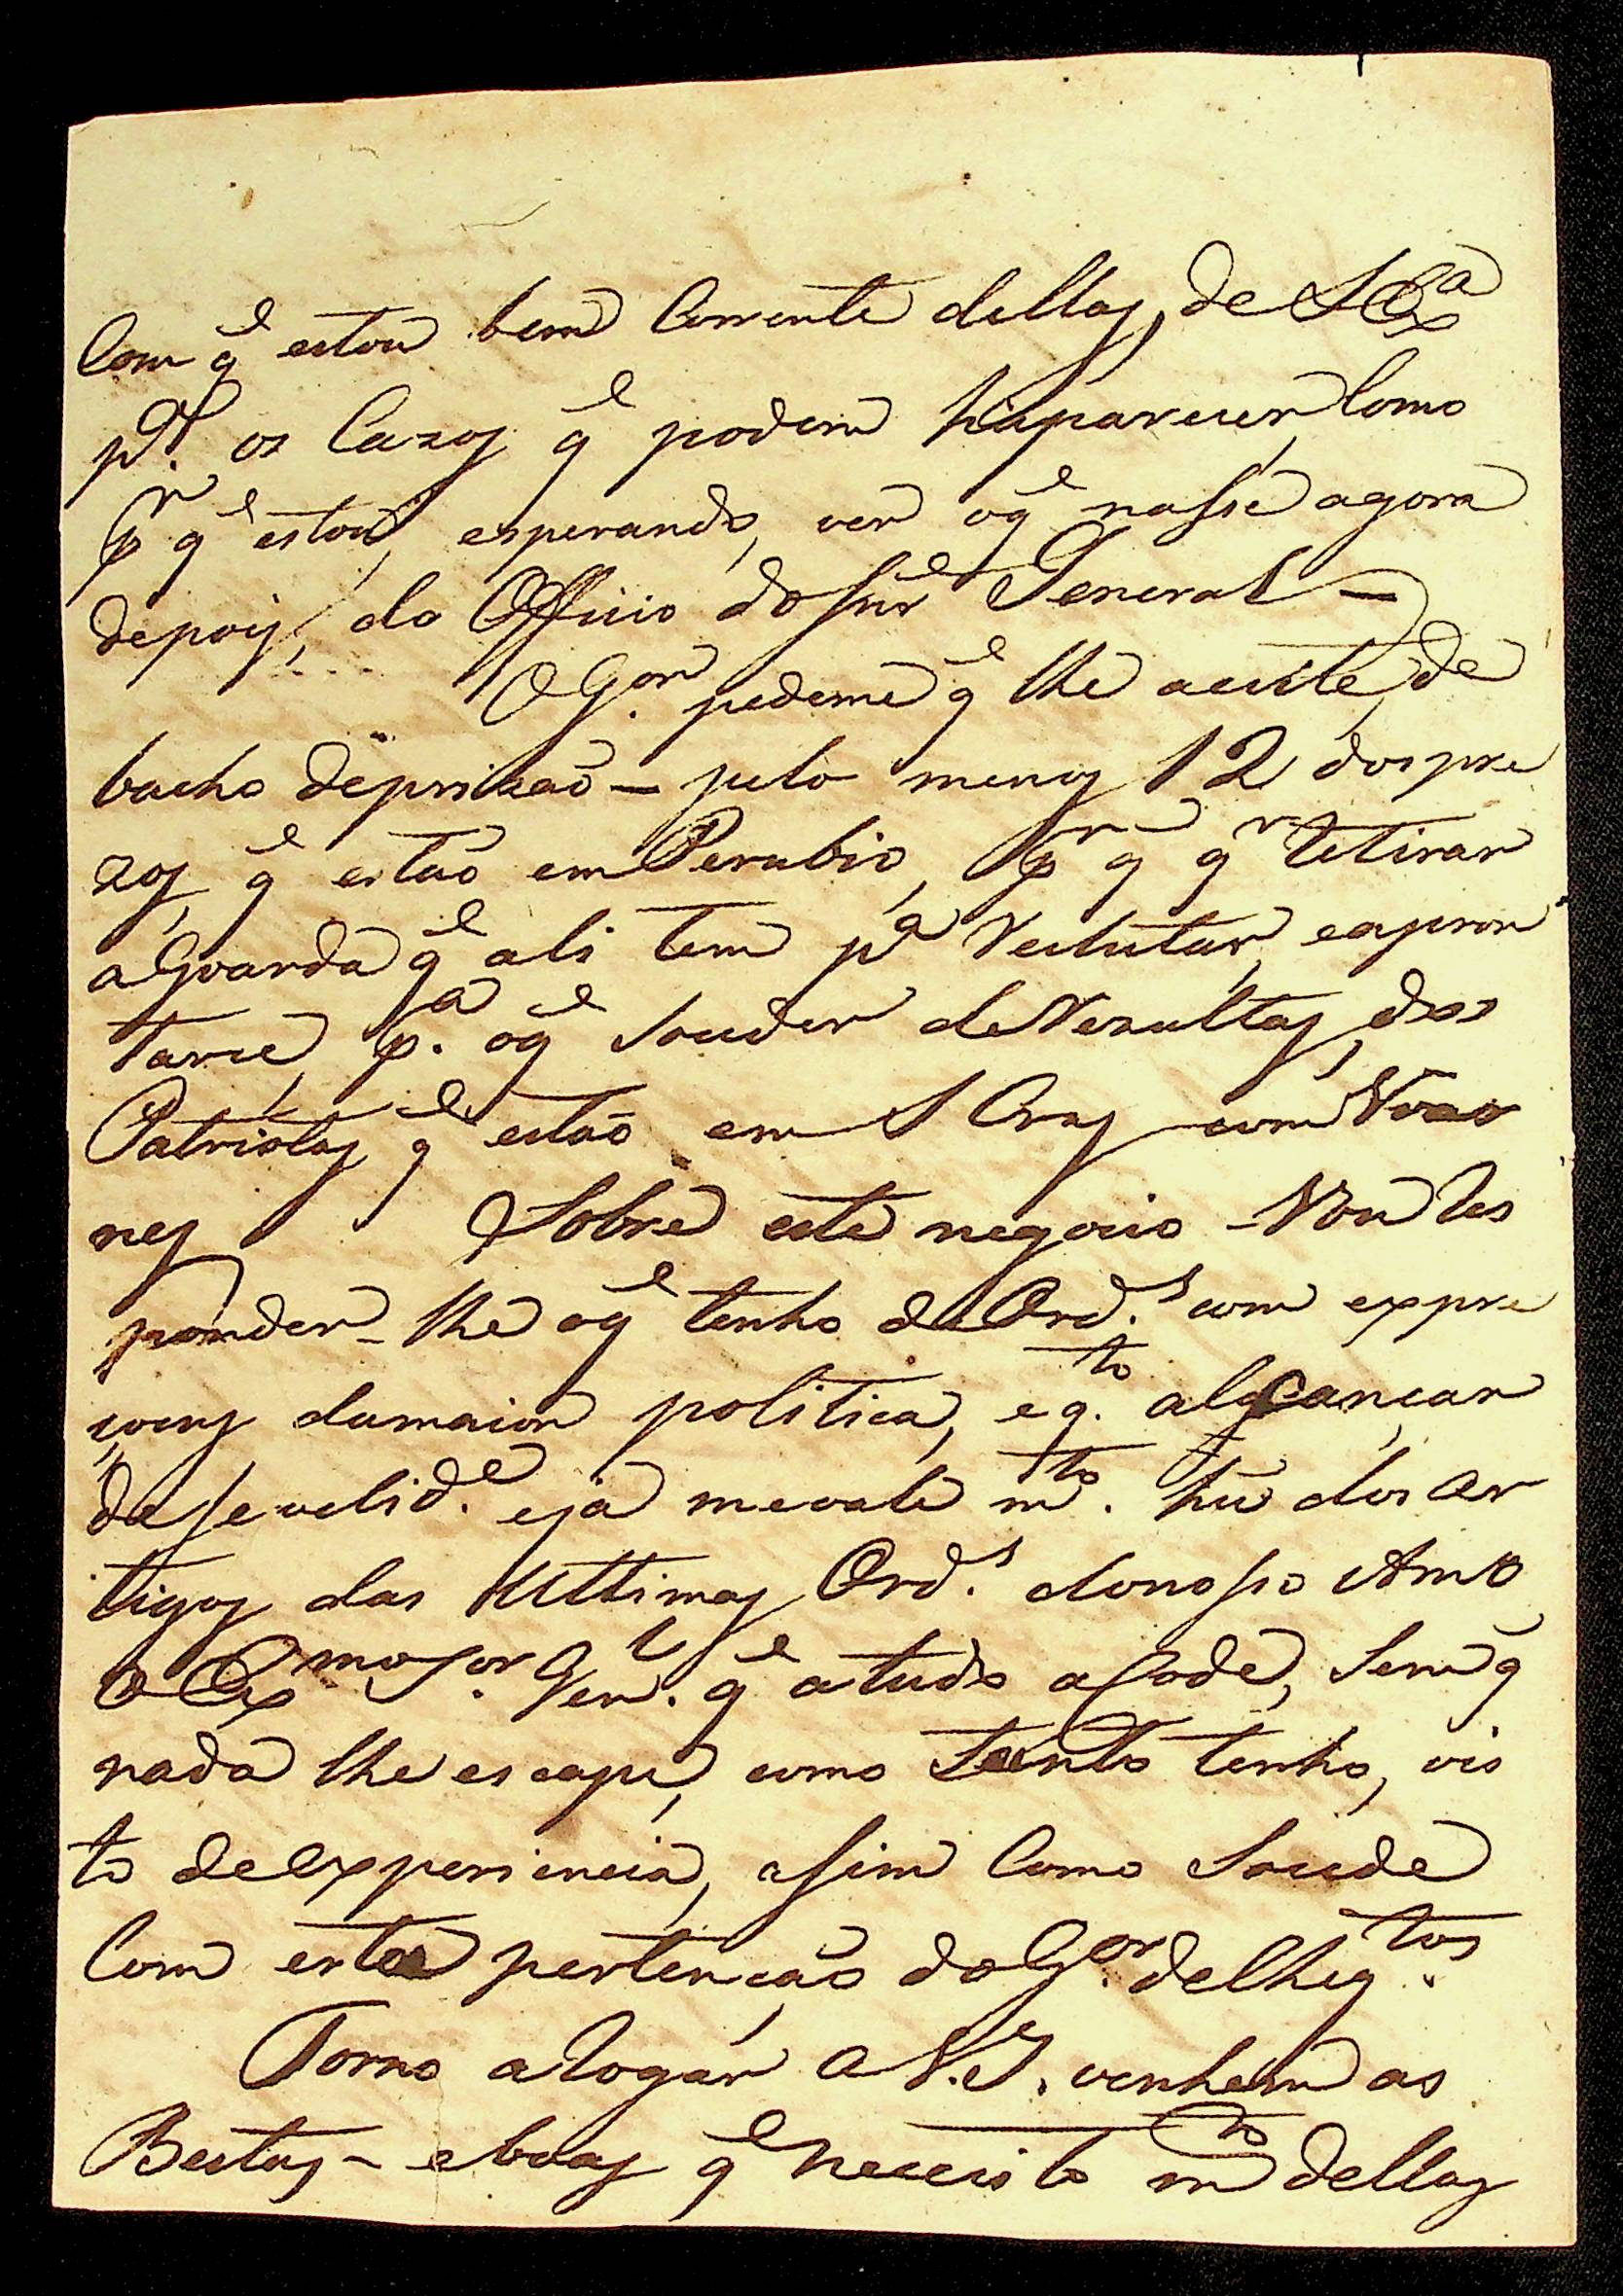 Com q̃ estou bem Corrente dellas, de S Exª
pª. os Cazos q̃ podem hapareçer, Como
pr q̃ estou, esperando, ver oq̃ nasse agora
depois, do Officio do Snr̃ General —
O Gor. pedeme q̃ lhe aceite, de
bacho deprizaõ — pelo menos 12 dos pre
zos, q̃ estaõ em Perubio, pr q̃ qr tetirar
aGoarda q̃ ali tem pª Reclutar, eapron
tarce, pª. oq̃ Souder de Rezultas, dos
Patriotas, q̃ estaõ em S Cruz com Voao
nes Sobre este negocio - Vou Res
ponder-lhe oq̃ tenho de Ord.s com expre
çoens damaior politica, e q.to alcançar
da se velid.e eja mevale m.to hũ dos Ar
tigos das Ulttimas Ord.s donosso Amo
o Exmo Sor. Gen.l q̃ atudo acode, Sem q̃
nada lhe escape, como tanto tenho, vis
to deExperiencia, asim Como Soude
Com esta pertençaõ do Gor. delhe q.tos
Torno a Rogar a V.S. venhem as
Bestas - eboas q̃ neceçito mto dellas